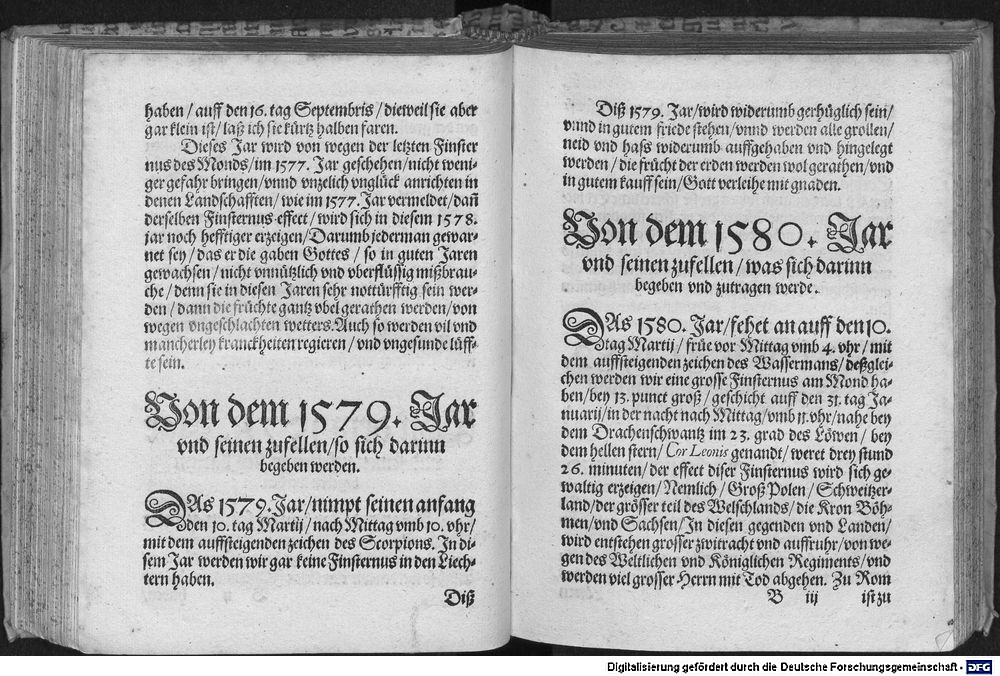 haben / auff den 16. tag Septembris / dieweil sie aber
gar klein ist / laß ich sie kürtz halben faren.
Dieses Jar wird von wegen der letzten Finster
nus des Monds / im 1577. Jar geschehen / nicht weni-
ger gefahr bringen / vnnd vnzelich vnglück anrichten in
denen Landschafften / wie im 1577. Jar vermeldet / dañ
derselben Finsternus effect / wird sich in diesem 1578.
jar noch hefftiger erzeigen / Darumb jederman gewar-
net sey / das er die gaben Gottes / so in guten Jaren
gewachsen / nicht vnnützlich vnd vberflüssig mißbrau-
che / denn sie in diesen Jaren sehr nottürfftig sein wer-
den / dann die früchte gantz vbel gerathen werden / von
wegen vngeschlachten wetters. Auch so werden vil vnd
mancherley kranckheiten regieren / vnd vngesunde lüff-
te sein.
Von dem 1579. Jar
vnd seinen zufellen / so sich darinn
begeben werden.
DAs 1579. Jar / nimpt seinen anfang
den 10. tag Martij / nach Mittag vmb 10. vhr /
mit dem auffsteigenden zeichen des Scorpions. In di-
sem Jar werden wir gar keine Finsternus in den Liech-
tern haben.
Diß
Diß 1579. Jar / wird widerumb gerhüglich sein /
vnnd in gutem friede stehen / vnnd werden alle grollen /
neid vnd hass widerumb auffgehaben vnd hingelegt
werden / die frücht der erden werden wol gerathen / vnd
in gutem kauff sein / Gott verleihe mit gnaden.
Von dem 1580. Jar
vnd seinen zufellen / was sich darinn
begeben vnd zutragen werde.
DAs 1580. Jar / fehet an auff den 10.
tag Martij / früe vor Mittag vmb 4. vhr / mit
dem auffsteigenden zeichen des Wassermans / deßglei-
chen werden wir eine grosse Finsternus am Mond ha-
ben / bey 13. punct groß / geschicht auff den 31. tag Ja-
nuarij / in der nacht nach Mittag / vmb 11. vhr / nahe bey
dem Drachenschwantz im 23. grad des Löwen / bey
dem hellen stern / Cor Leonis genandt / weret drey stund
26. minuten / der effect diser Finsternus wird sich ge-
waltig erzeigen / Nemlich / Groß Polen / Schweitzer-
land / der grösser teil des Welschlands / die Kron Böh-
men / vnd Sachsen / In diesen gegenden vnd Landen /
wird entstehen grosser zwitracht vnd auffruhr / von we-
gen des Weltlichen vnd Königlichen Regiments / vnd
werden viel grosser Herrn mit Tod abgehen. Zu Rom
B iij ist zu
Digitalisierung gefördert durch die Deutsche Forschungsgemeinschaft - DFG